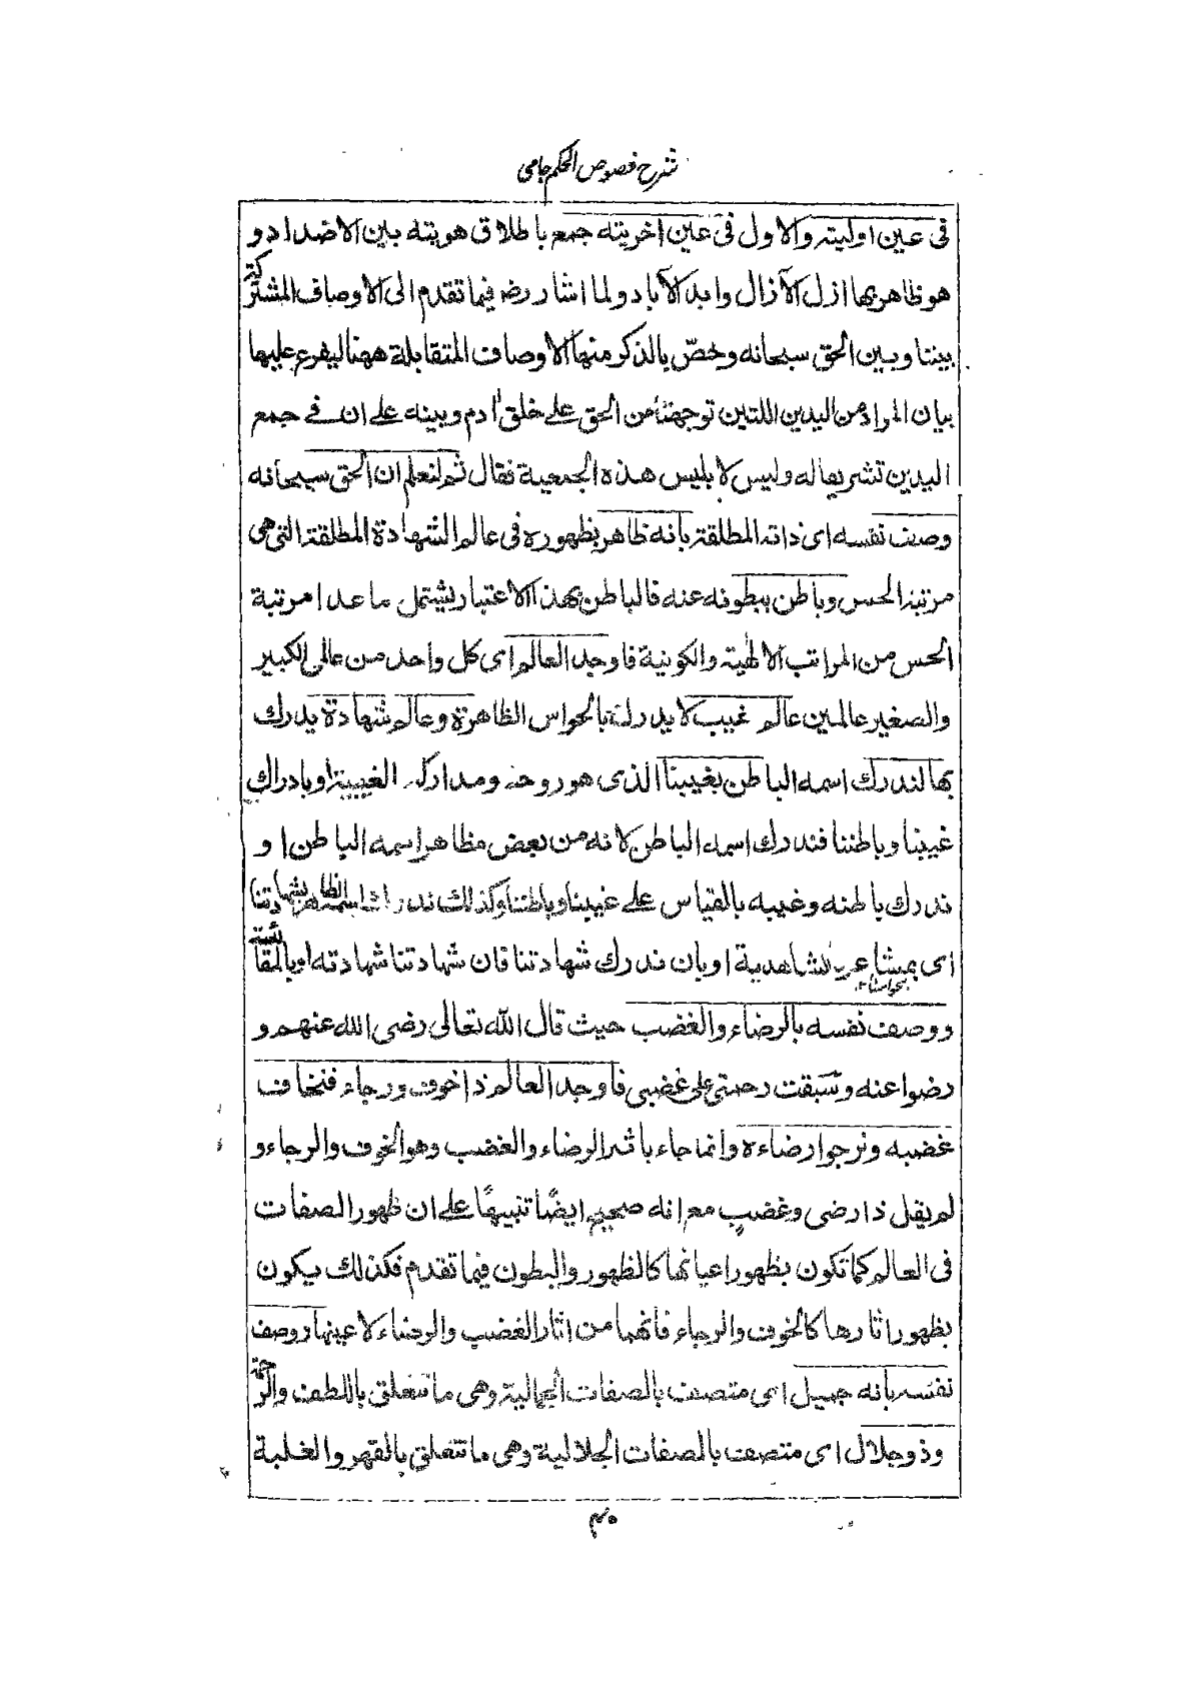 شرح فصوص الحكم جامى
فى عين اوليته والاول فى عين اخريته جمع باطلاق هويته بين الاضداد و
هو ظاهر بها ازل الآزال وابد الآباد ولما اشار رضه فيما تقدم الى الاوصاف المشتركة
بيننا وبين الحق سبحانه وخصّ بالذكر منها الاوصاف المتقابلة ههنا ليفرع عليها
بيان المراد من اليدين اللتين توجهتا من الحق على خلق آدم وبينه على ان فى جمع
اليدين تشريفا له وليس لابليس هذه الجمعية فقال ثم لنعلم ان الحق سبحانه
وصف نفسه اى ذاته المطلقة بانه ظاهر بظهوره فى عالم الشهادة المطلقة التى هى
مرتبة الحس وباطن ببطونه عنه فالباطن بهذا الاعتبار يشتمل ما عدا مرتبة
الحس من المراتب الالهية والكونية فاوجد العالم اى كل واحد من عالمى الكبير
والصغير عالمين عالم غيب لا يدرك بالحواس الظاهرة وعالم شهادة يدرك
بها لندرك اسمه الباطن بغيبنا الذى هو روحه ومداركه الغيبية او بادراك
غيبنا وباطننا فندرك اسمه الباطن لانه من بعض مظاهر اسمه الباطن او
ندرك باطنه وغيبه بالقياس على غيبنا وباطننا وكذلك ندرك اسمه الظاهر بشهادتنا
اى بمشاعر الشاهدية او بان ندرك شهادتنا فان شهادتنا شهادته او بالمقائسة
بحواسنا
ووصف نفسه بالرضاء والغضب حيث قال الله تعالى رضى الله عنهم و
رضوا عنه وسبقت رحمتى على غضبى فاوجد العالم ذا خوف ورجاء فنخاف
غضبه ونرجوا رضاءه وانما جاء باثر الرضاء والغضب وهو الخوف والرجاء و
لم يقل ذا رضى وغضبٍ مع انه صحيح ايضًا تنبيهًا على ان ظهور الصفات
فى العالم كما تكون بظهور اعيانها كالظهور والبطون فيما تقدم فكذلك يكون
بظهور اثارها كالخوف والرجاء فانهما من اثار الغضب والرضاء لا عينهما ووصف
نفسه بانه جميل اى متصف بالصفات الجمالية وهى ما تتعلق باللطف والرحمة
وذو جلال اى متصف بالصفات الجلالية وهى ما تتعلق بالقهر والغلبة